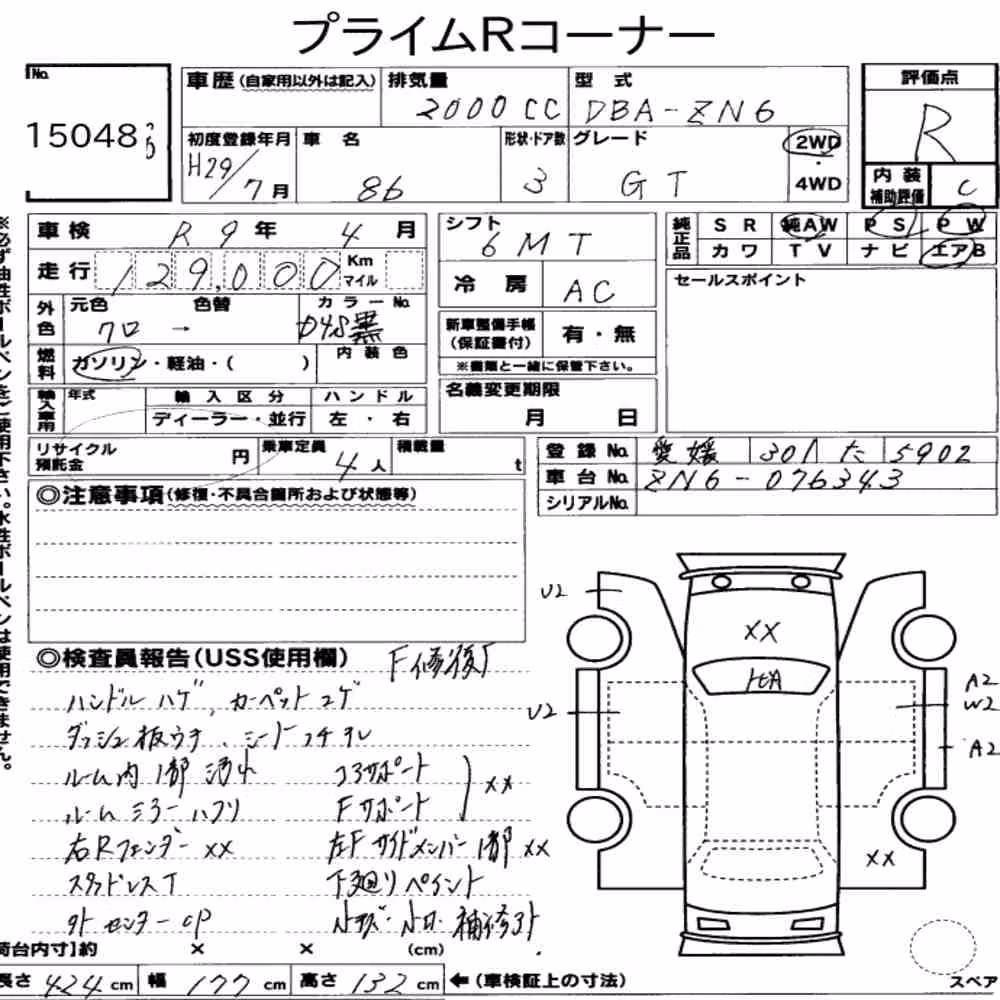 プライムRコーナー
No.
15048
車歴(自家用以外は記入)
排気量
2000CC
型式
DBA-ZN6
初度登録年月
H29/7月
車名
86
形状・ドア数
3
グレード
GT
2WD
・
4WD
評価点
R
内装
補助評価
C
車検
R 9年 4月
走行
129,000
Km
マイル
外色
元色
クロ
→
色替
カラーNo.
D4S黒
燃料
ガソリン・軽油・( )
内装色
輸入車用
年式
輸入区分
ディーラー・並行
ハンドル
左・右
リサイクル
預託金
円
乗車定員
4人
積載量
t
シフト
6MT
冷房
AC
新車整備手帳
(保証書付)
有・無
※書類と一緒に保管下さい。
名義変更期限
月 日
純正品
SR 純AW PS PW
カワ TV ナビ エアB
セールスポイント
登録No.
愛媛 301 た 5902
車台No.
ZN6-076343
シリアルNo.
◎注意事項(修復・不具合箇所および状態等)
◎検査員報告(USS使用欄)
F修復
ハンドルハゲ、カーペットコゲ
ダッシュ板ウキ、シートコゲ
ルーム内1部
コアサポート
××
Fサポート
右Rフェンダー××
左Fサイドメンバー1部××
スタッドレスT
下廻りペイント
センターCP
補修
U2
××
U2
A2
W2
A2
××
荷台内寸】約 × × (cm)
長さ 424cm 幅 177cm 高さ 132cm ←(車検証上の寸法)
スペア
※必ず油性ボールペンをご使用下さい。水性ボールペンは使用できません。